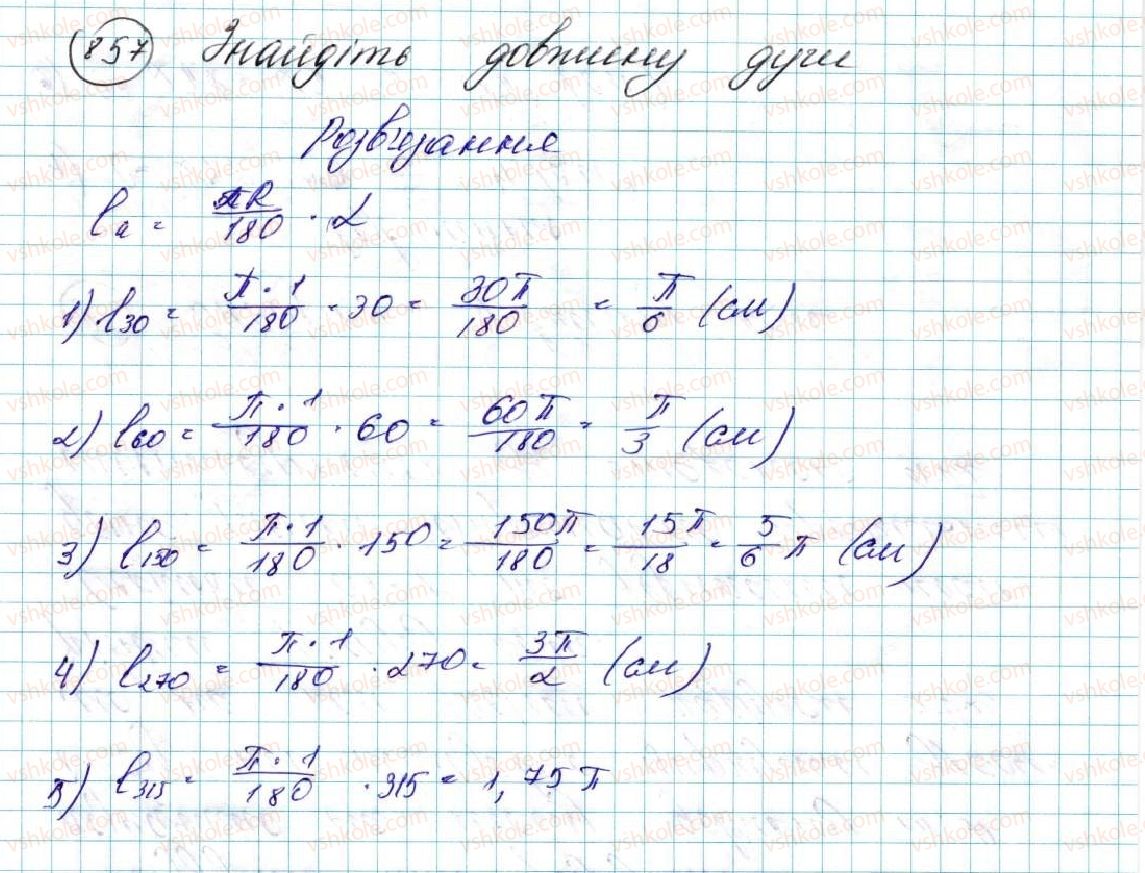 857 Знайдіть довжину дуги
Розв'язання
lα = πR/180 · α
1) l30 = π·1/180 · 30 = 30π/180 = π/6 (см)
2) l60 = π·1/180 · 60 = 60π/180 = π/3 (см)
3) l150 = π·1/180 · 150 = 150π/180 = 15π/18 = 5/6 π (см)
4) l270 = π·1/180 · 270 = 3π/2 (см)
5) l315 = π·1/180 · 315 = 1,75π
vshkole.com